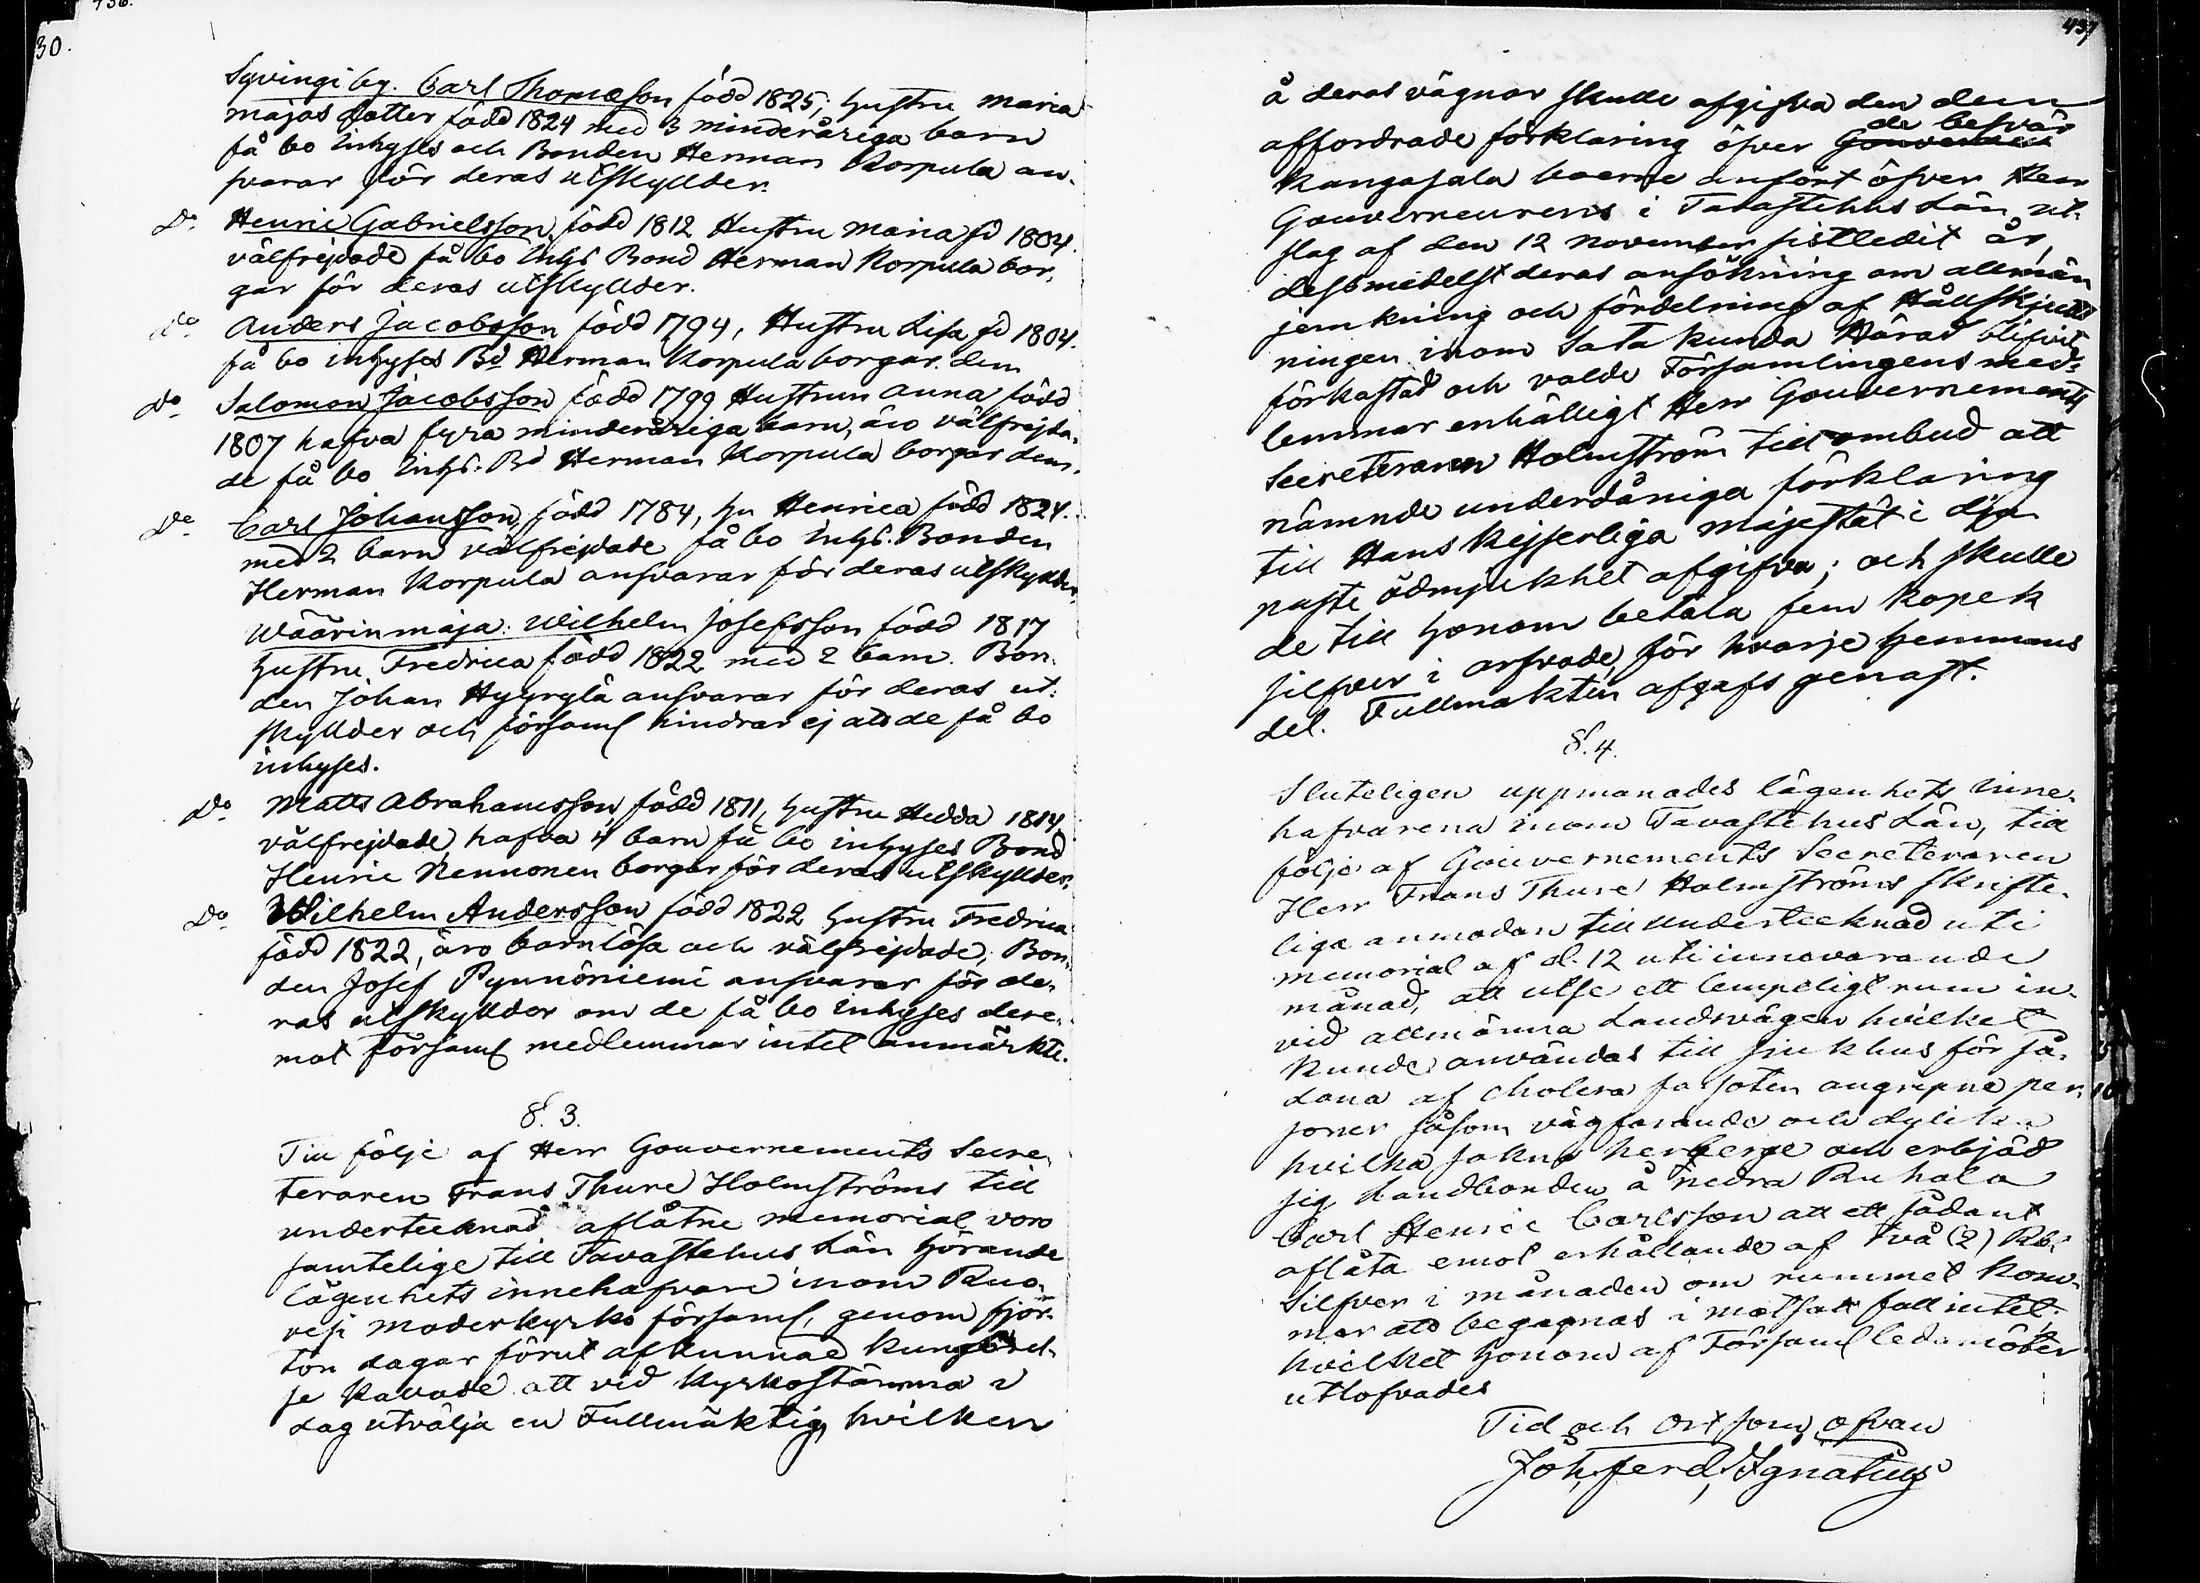 436.
30.
Syvingi by. Carl Thomæsson född 1825; hustru Maria
Majas dotter född 1824 med 3 minderåriga barn
få bo inhyses och Bonden Herman Korpula an-
svarar för deras utskyllder.
Do Henric Gabrielsson född 1812 Hustru Maria fd 1804.
välfrejdade få bo Inhs Bond Herman Korpula bor-
gar för deras utskyllder.
Do Anders Jacobsson född 1794, Hustru Lisa fd 1804.
få bo inhyses Bd Herman Korpula borgar dem
Do Salomon Jacobsson född 1799 Hustrun Anna född
1807 hafva fyra minderåriga barn, äro välfrejda-
de få bo Inhs. Bd Herman Korpula borgar dem.
Do Carl Johansson, född 1784, hu Henrica född 1824.
med 2 barn välfrejdade få bo Inhs. Bonden
Herman Korpula ansvarar för deras utskyllder,
Wäärinmaja: Wilhelm Josefsson född 1817
hustru Fredrica född 1822 med 2 barn. Bon-
den Johan Hyyrylä ansvarar för deras ut-
skyllder och församl hindrar ej att de få bo
inhyses.
Do Matts Abrahamsson, född 1811, hustru Hedda 1814
välfrejdade, hafva 4 barn få bo inhyses Bond
Henric Nennonen borgar för deras utskyllder.
Do Wilhelm Andersson född 1822 hustru Fredrica
född 1822, äro barnlösa och välfrejdade, Bon-
den Josef Pynnöniemi ansvarar för de-
ras utskyllder om de få bo inhyses dere-
mot församl medlemmar intet anmärkte.
§. 3.
Till följe af Herr Gouvernements Secre-
teraren Frans Thure Holmströms till
undertecknad aflåtne memorial voro
samtelige till Tavastehus Län hörande
lägenhets innehafvare inom Ruo-
vesi moderkyrko församl, genom fjor-
ton dagar förut afkunnad kungörel-
se kallade att vid Kyrkostämma i
dag utvälja en Fullmäktig, hvilken
437
å deras vägnar skulle afgifva den dem
affordrade förklaring öfver de besvär
Kangasala boerne anfört öfver Herr
Gouverneurens i Tavastehus Län ut-
slag af den 12 November sistledit år,
desomedelst deras ansökning om allmän
jemkning och fördelning af Hållskjuts
ningen inom Satakunda Härad blifvit
förkastad och valde Församlingens med-
lemmar enhälligt Herr Gouvernements
Secreteraren Holmström till ombud att
nämnde underdåniga förklaring
till Hans Kejserliga Majestät i dju
paste ödmjukhet afgifva; och skulle
de till honom betala fem kopek
silfver i arfvode, för hvarje hemmans
del. Fullmakten afgafs genast.
§. 4.
Sluteligen uppmanades lägenhets inne-
hafvarena inom Tavastehus Län, till
följe af Gouvernements Secreteraren
Herr Frans Thure Holmströms skrifte-
liga anmodan till undertecknad uti
memorial af d. 12 uti innevarande
månad, att utse ett lempeligt rum in-
vid allmänna Landsvägen hvilket
kunde användas till sjukhus för så-
dana af cholera farsoten angripna per-
soner såsom vägfarande och dylika
hvilka sakna herberge och erbjöd
sig Landbonden å nedra Ruhala
Carl Henric Carlsson att ett sådant
aflåta emot erhållande af två (2) Rb.
Silfver i månaden om rummet kom-
mer att begagnas i motsatt fall intet.
hvilket honom af Församl ledamöter
utlofvades
Tid och Ort som ofvan
Joh. Ferd. Ignatius